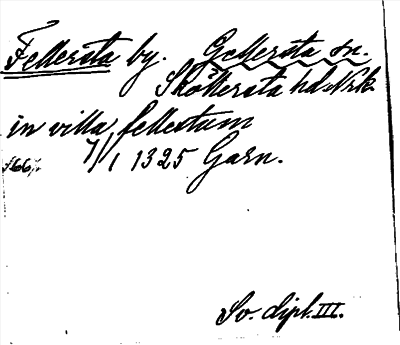 Fellersta by. Gellersta sn.
Sköllersta hd. Nrk.
in villa fellestum
7/1 1325 Garn.
Sv. dipl. III.